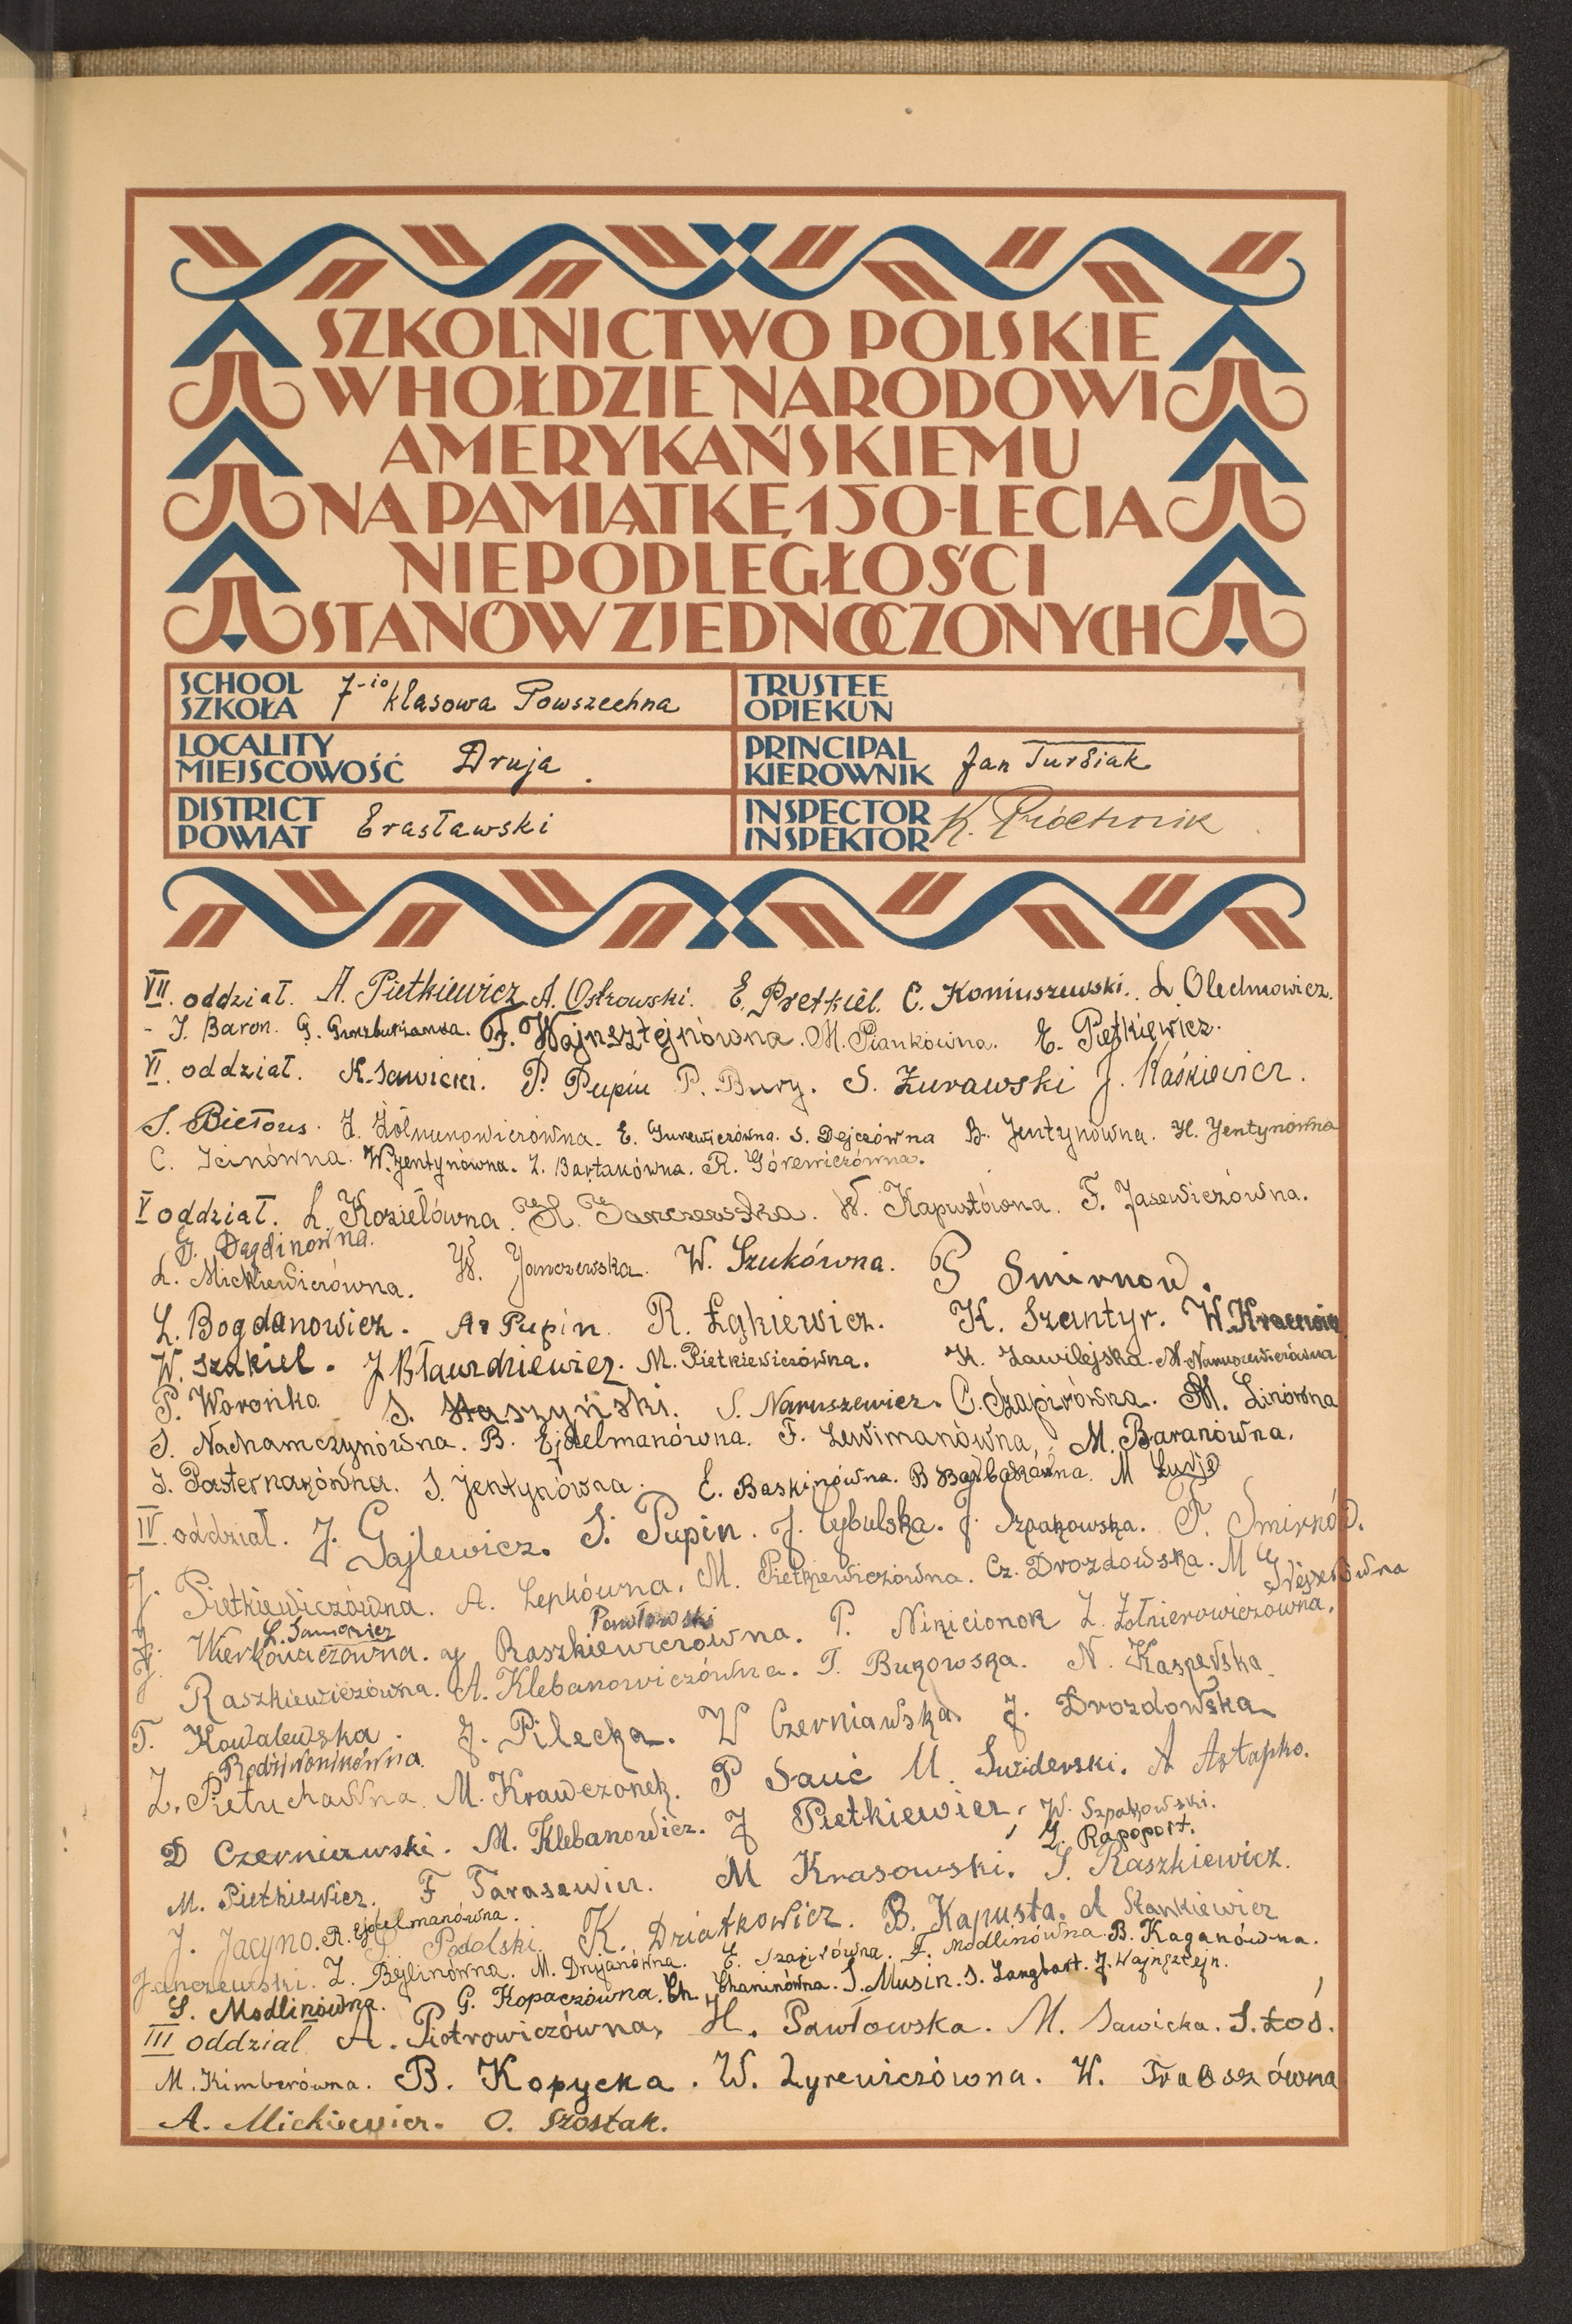 SZKOLNICTWO POLSKIE
W HOŁDZIE NARODOWI
AMERYKAŃSKIEMU
NA PAMIĄTKĘ 150-LECIA
NIEPODLEGŁOŚCI
STANÓW ZJEDNOCZONYCH
SCHOOL SZKOŁA 7-io klasowa Powszechna
TRUSTEE OPIEKUN
LOCALITY MIEJSCOWOŚĆ Druja.
PRINCIPAL KIEROWNIK Jan Tursiak
DISTRICT POWIAT Brasławski
INSPECTOR INSPEKTOR K. Próchnik
VII. oddział. A. Pietkiewicz A. Ostrowski. E. Pretkiel. C. Koniuszewski. L Olechnowicz.
- J. Baron. G. F. Wajnsztejnówna. M. Piankówna. E. Piętkiewicz.
VI. oddział. K. Sawicki. P. Pupin P. Bury. S. Żurawski J. Kaśkiewicz.
S. Biełous. J. E. Gurewiczówna. S. Dejczówna B. Jentynówna. H. Jentynówna
C. Icinówna. W. Jentynówna. L. Bartakówna. R. Górewiczówna.
V oddział. L. Koziełówna. H. Janczewska. W. Kapustówna. F. Jasewiczówna.
G. Degdinówna.
L. Mickiewiczówna. W. Janczewska. W. Szukówna. P Smirnow.
L. Bogdanowicz. A. Pupin. R. Łąkiewicz. K. Szantyr. W.
W. Szakiel. J. M. Pietkiewiczówna. K. Zawilejska. N. Naruszewiczówna
P. Woronko S. Staszyński. S. Naruszewicz. C. Szapirówna. M. Linówna
S. Nachamczynówna. B. Ejdelmanówna. F. Lewimanówna, M. Baranówna.
J. Pasternakówna. S. Jentynówna. E. Baskinówna. B M
IV. oddział. J. Gajlewicz. S. Pupin. J. Cybulska. J. Szpakowska. P. Smirnów.
J. Pietkiewiczówna. A. Lepkówna. M. Pietkiewiczówna. Cz. Drozdowska. M
L. Pawłowski
Wierkowiczówna. J Raszkiewiczówna. P. Nikicionok Z. Żołnierowiczówna.
J. Raszkiewiczówna. A. Klebanowiczówna. T. Bukowska. N. Kasperska.
T. Kowalewska. J. Pilecka. W Czerniawska. J. Drozdowska
Rodziwonikówna.
Z. Pietuchawna M. Krawczonek. P Sauć M. Swiderski. A Astapko.
D Czerniawski. M. Klebanowicz. J Pietkiewicz, W. Szpakowski.
L. Rapoport.
M. Pietkiewicz. F Tarasewicz. M Krasowski. S. Raszkiewicz.
J. Jacyno. R. Ejdelmanówna. Podolski. K. Dziatkowicz. B. Kapusta. A Stankiewicz
Janczewski. Z. Bejlinówna. M. Drujanówna. E. Szapirówna. F. Modlinówna. B. Kaganówna.
S. Modlinówna. G. Kopaczówna. Ch Chaninówna. S. Musin. S. Langbort. J. Wajnsztejn.
III oddział A. Piotrowiczówna, H. Pawłowska. M. Sawicka. S. Łoś.
M. Kimberówna. B. Kopycka. W. Zyrewiczówna. W.
A. Mickiewicz. O. Szostak.